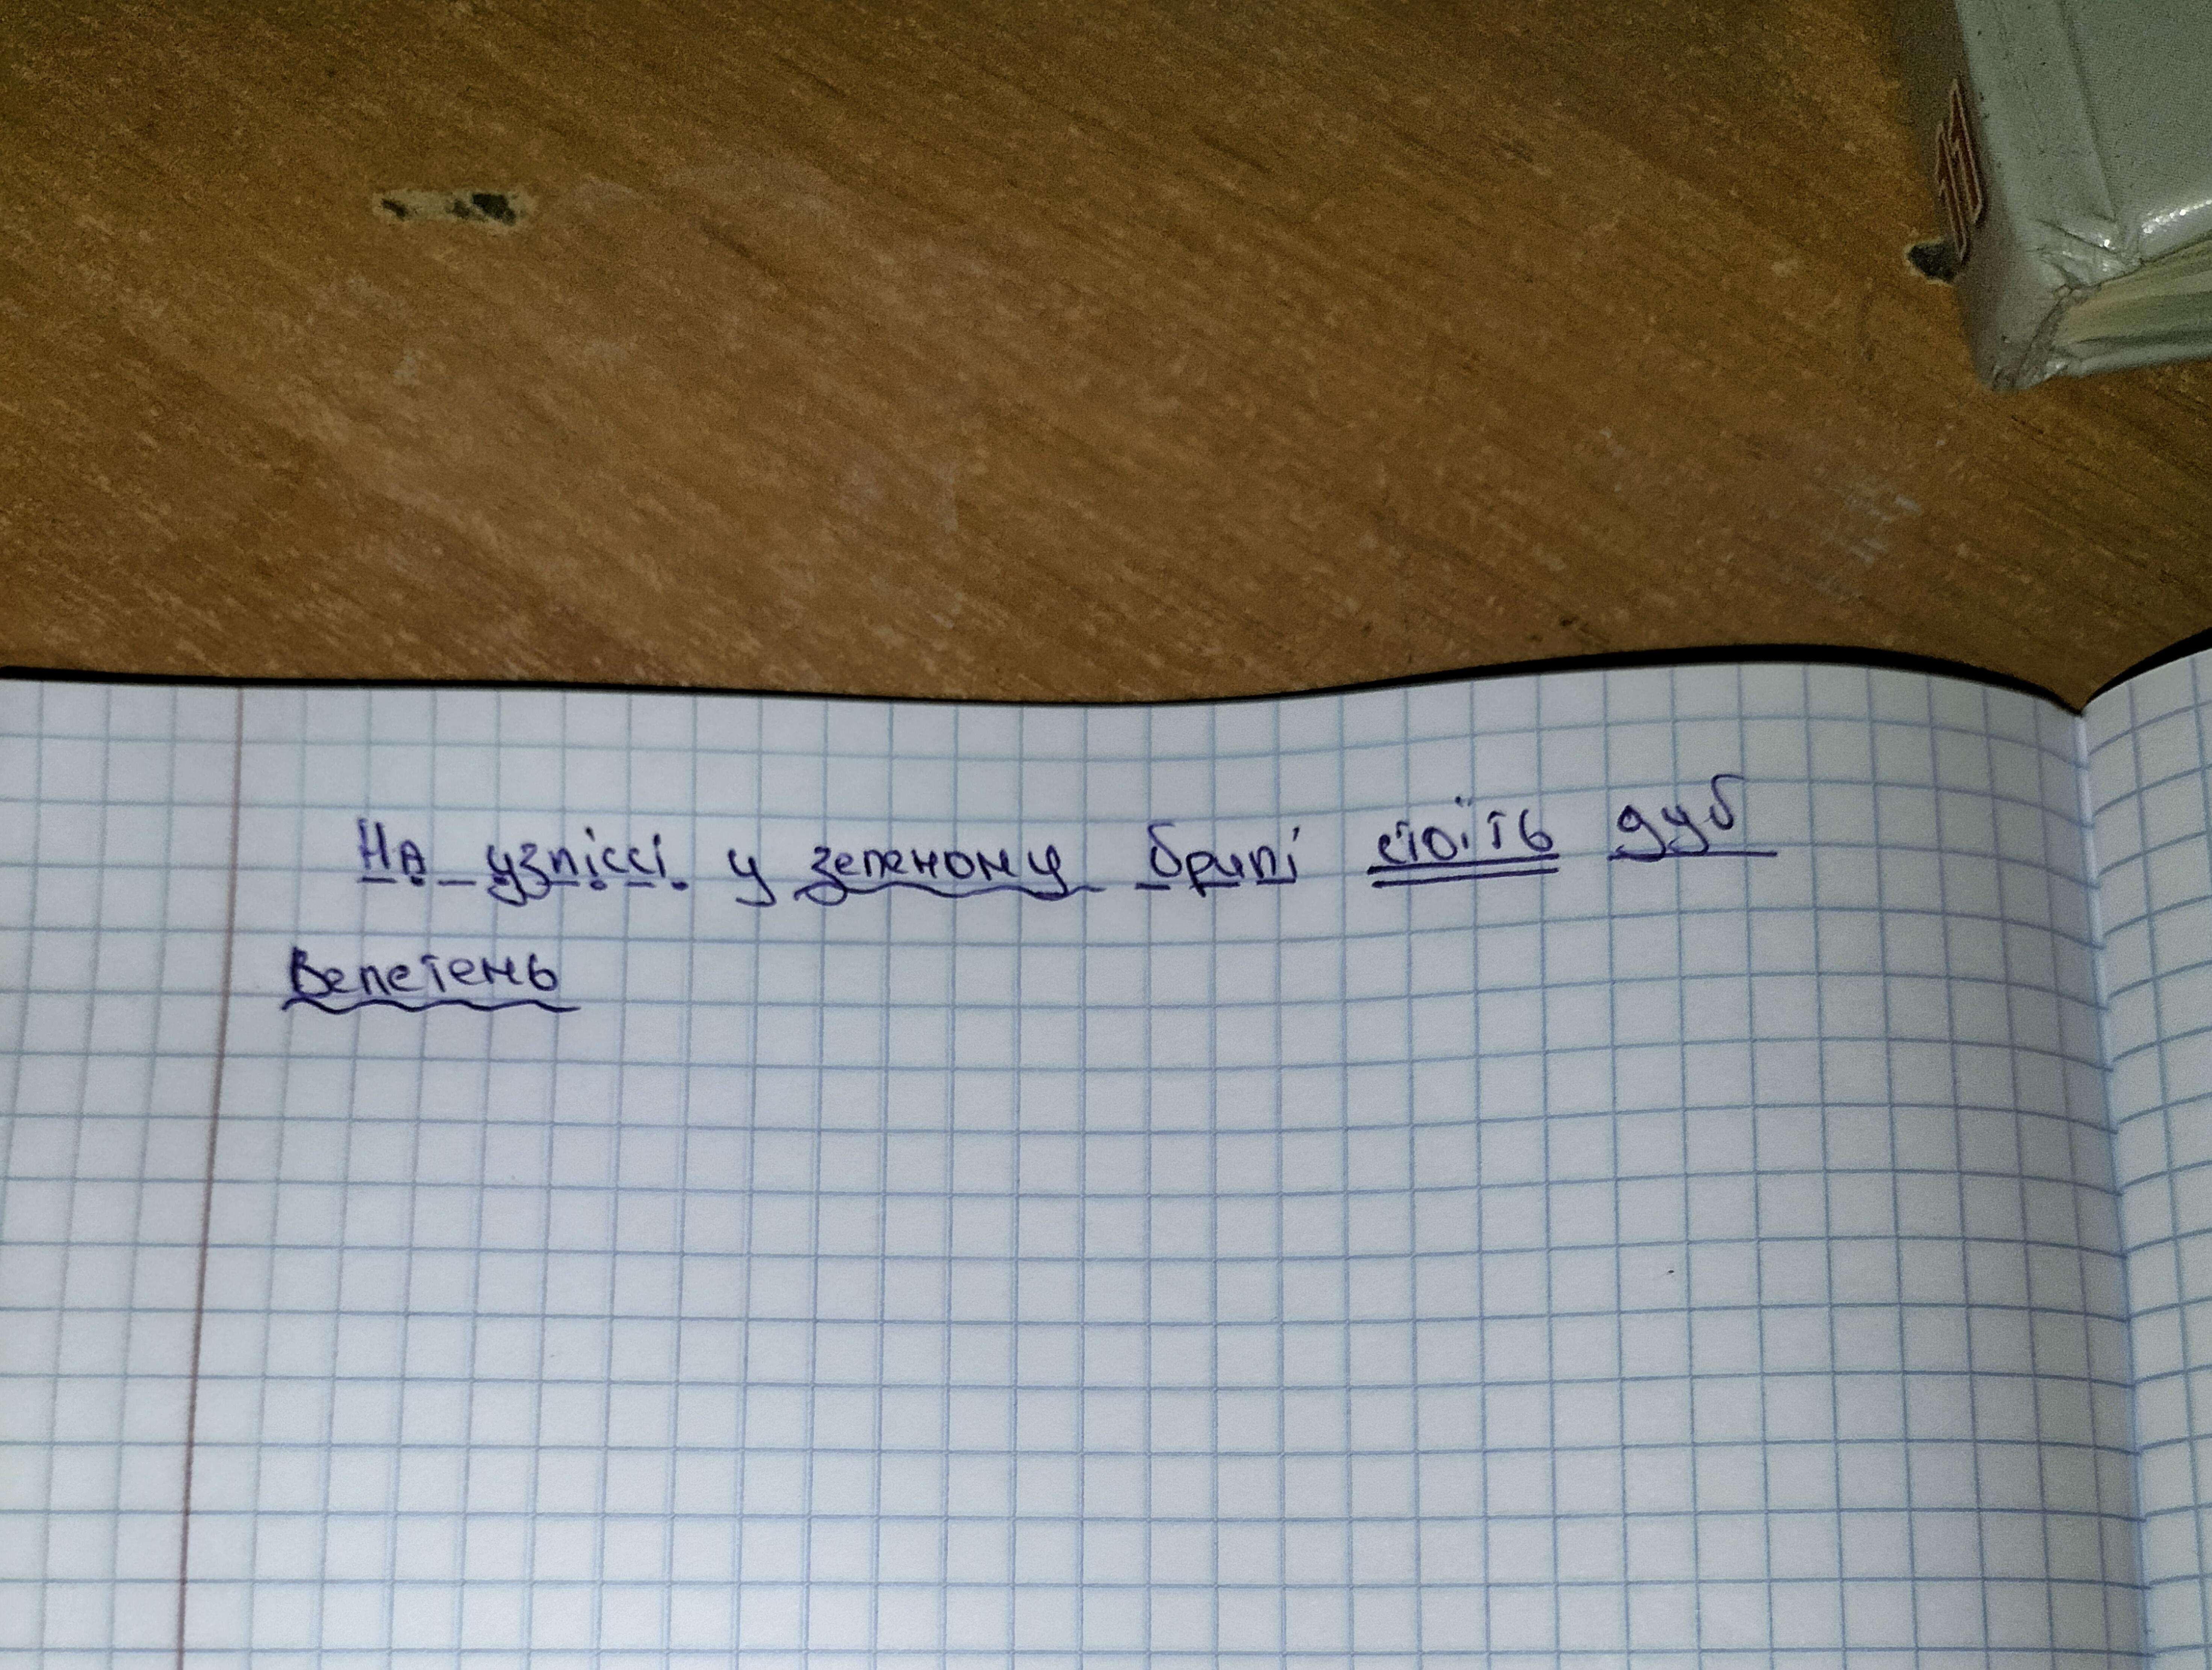 На узліссі у зеленому брилі стоїть дуб
Велетень